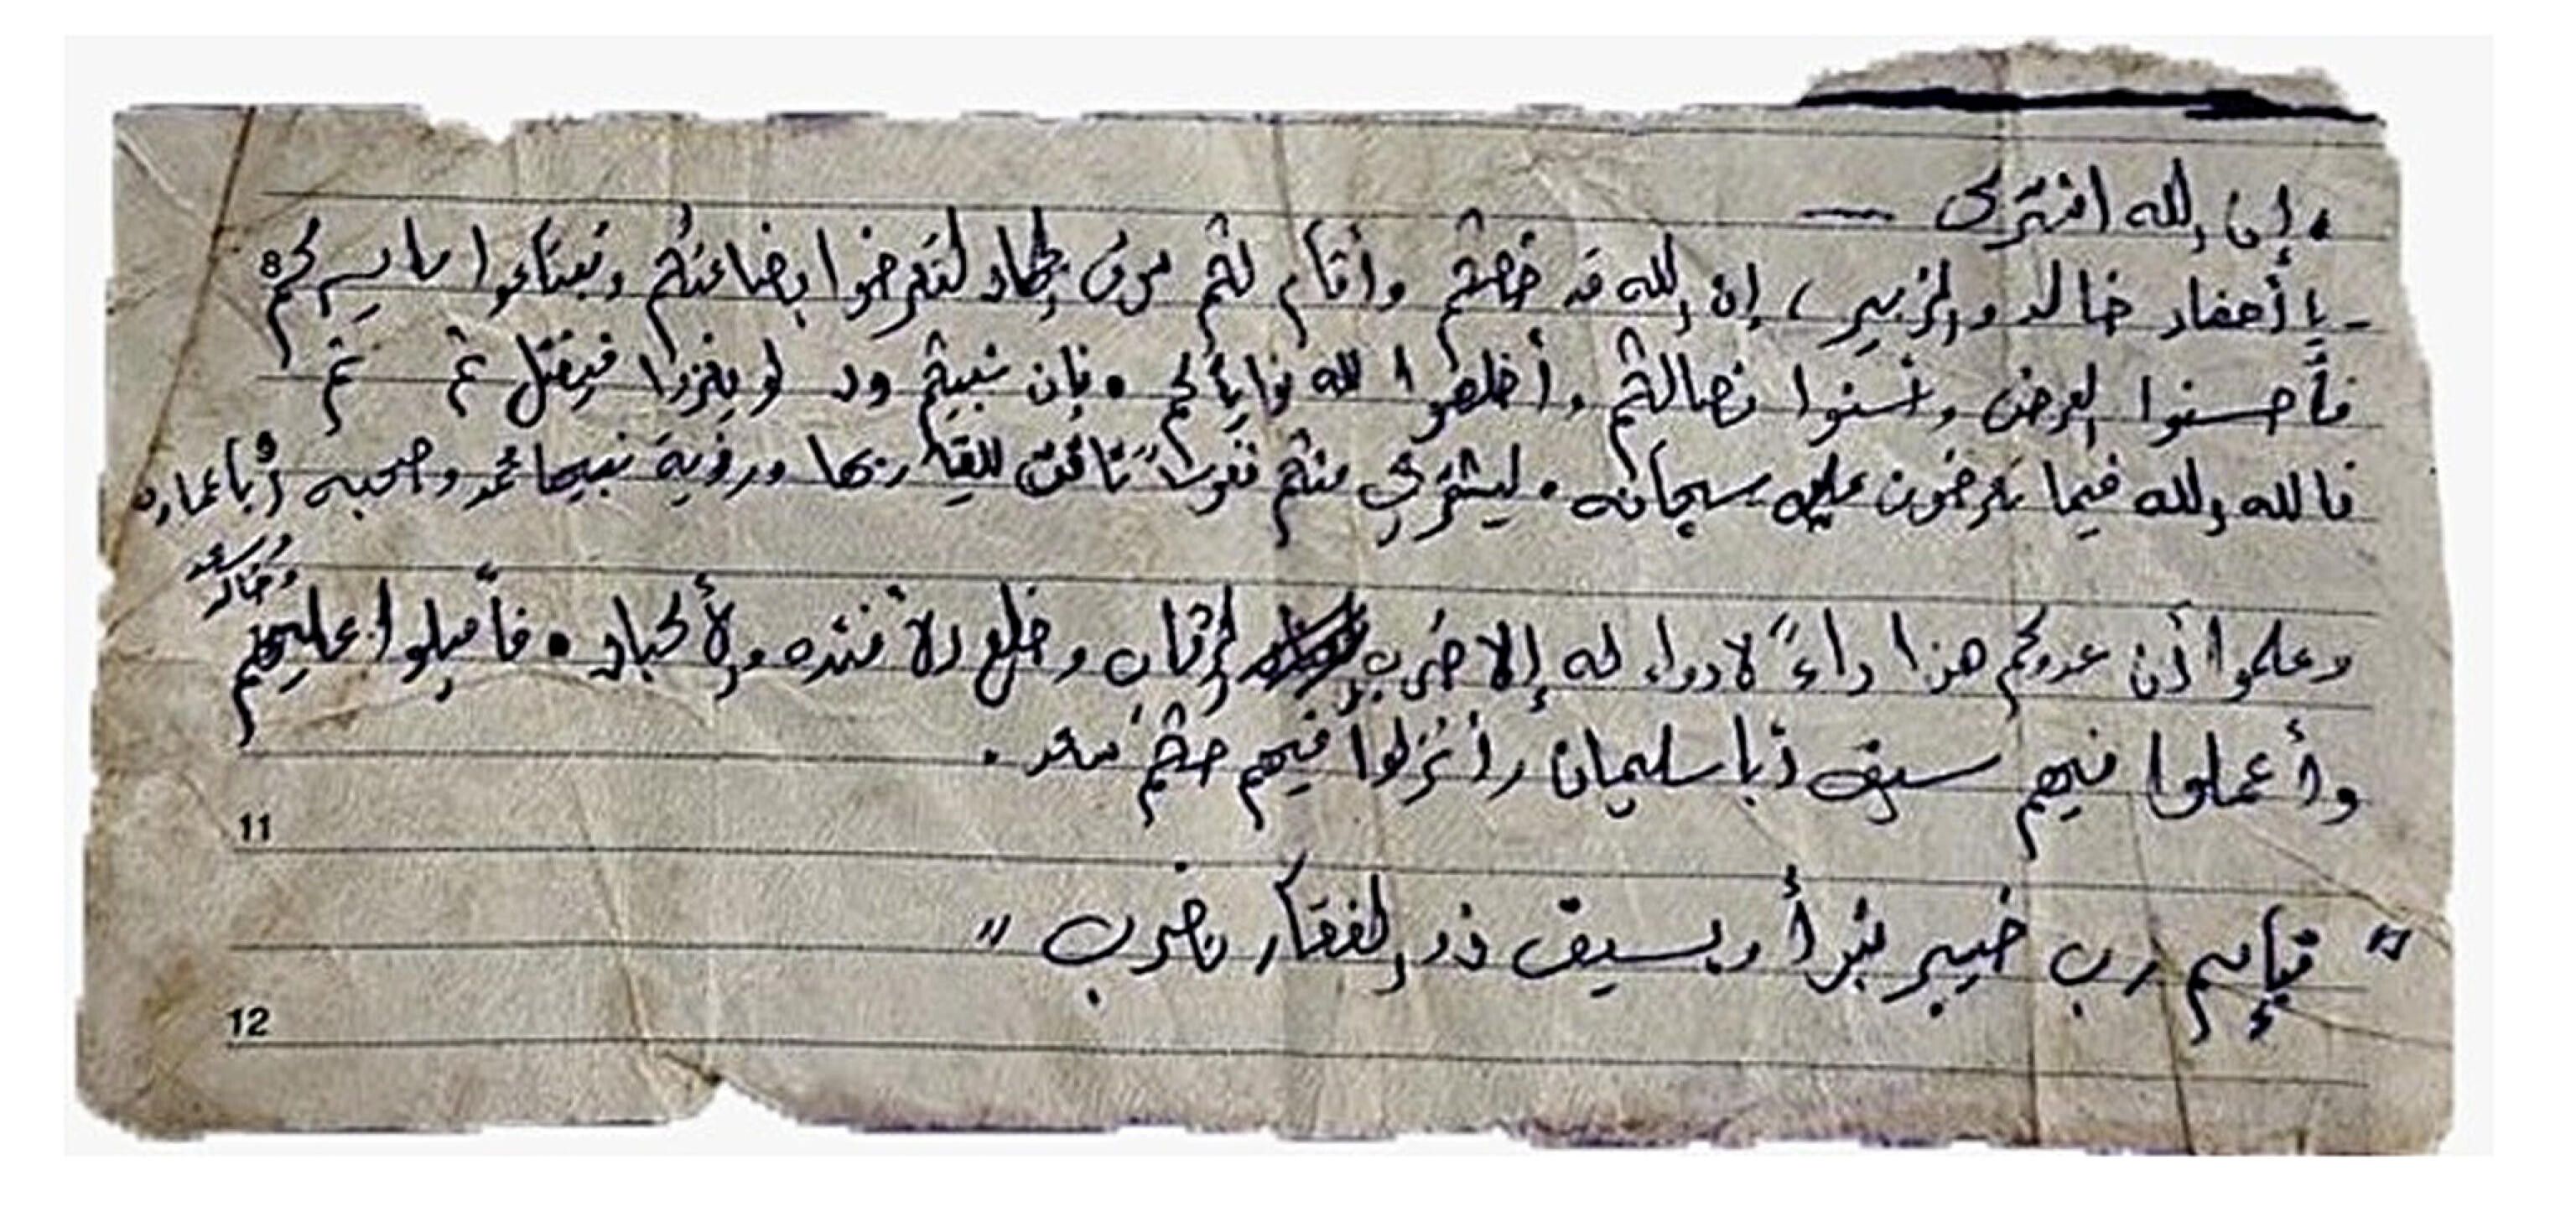 ، إن الله اشترى —
- يا أحفاد خالد والزبير، إن الله قد خصكم وأقام لكم سوق جهاد لتعرضوا بضاعتكم وتبتاعوا ما يسركم 8
فأحسنوا العرض و نصالكم وأخلصوا لله نواياكم . فإن نبيكم ود لو يغزوا فيقتل ثم ثم
فالله والله فيما تعرضون عليه سبحانه . ليشتري منكم نفوساً تاقت للقاء ربها ورؤية نبيها محمد وصحبه أبا عمارة
وخالد وسعد
وعلموا أن عدوكم هذا داءً لا دواء له إلا ضرب الرقاب وخلع الأفئده والأكباد . فأقبلوا عليهم
وأعملوا فيهم سيف أبا سليمان وأنزلوا فيهم حكم سعد .
11
" فبإسم رب خيبر نبرأ وبسيف ذو الفقار نضرب "
12